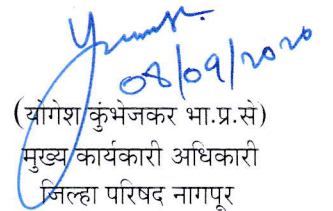 08/09/2020
(योगेश कुंभेजकर भा.प्र.से)
मुख्य कार्यकारी अधिकारी
जिल्हा परिषद नागपूर